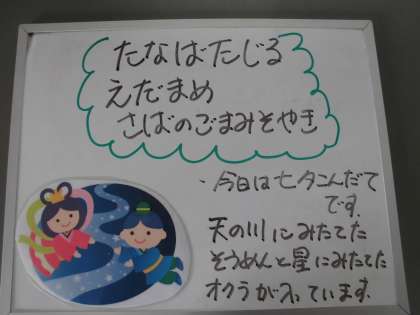 たなばたじる
えだまめ
さばのごまみそやき
・今日は七夕こんだて
です。
天の川にみたてた
そうめんと星にみたてた
オクラが入っています。